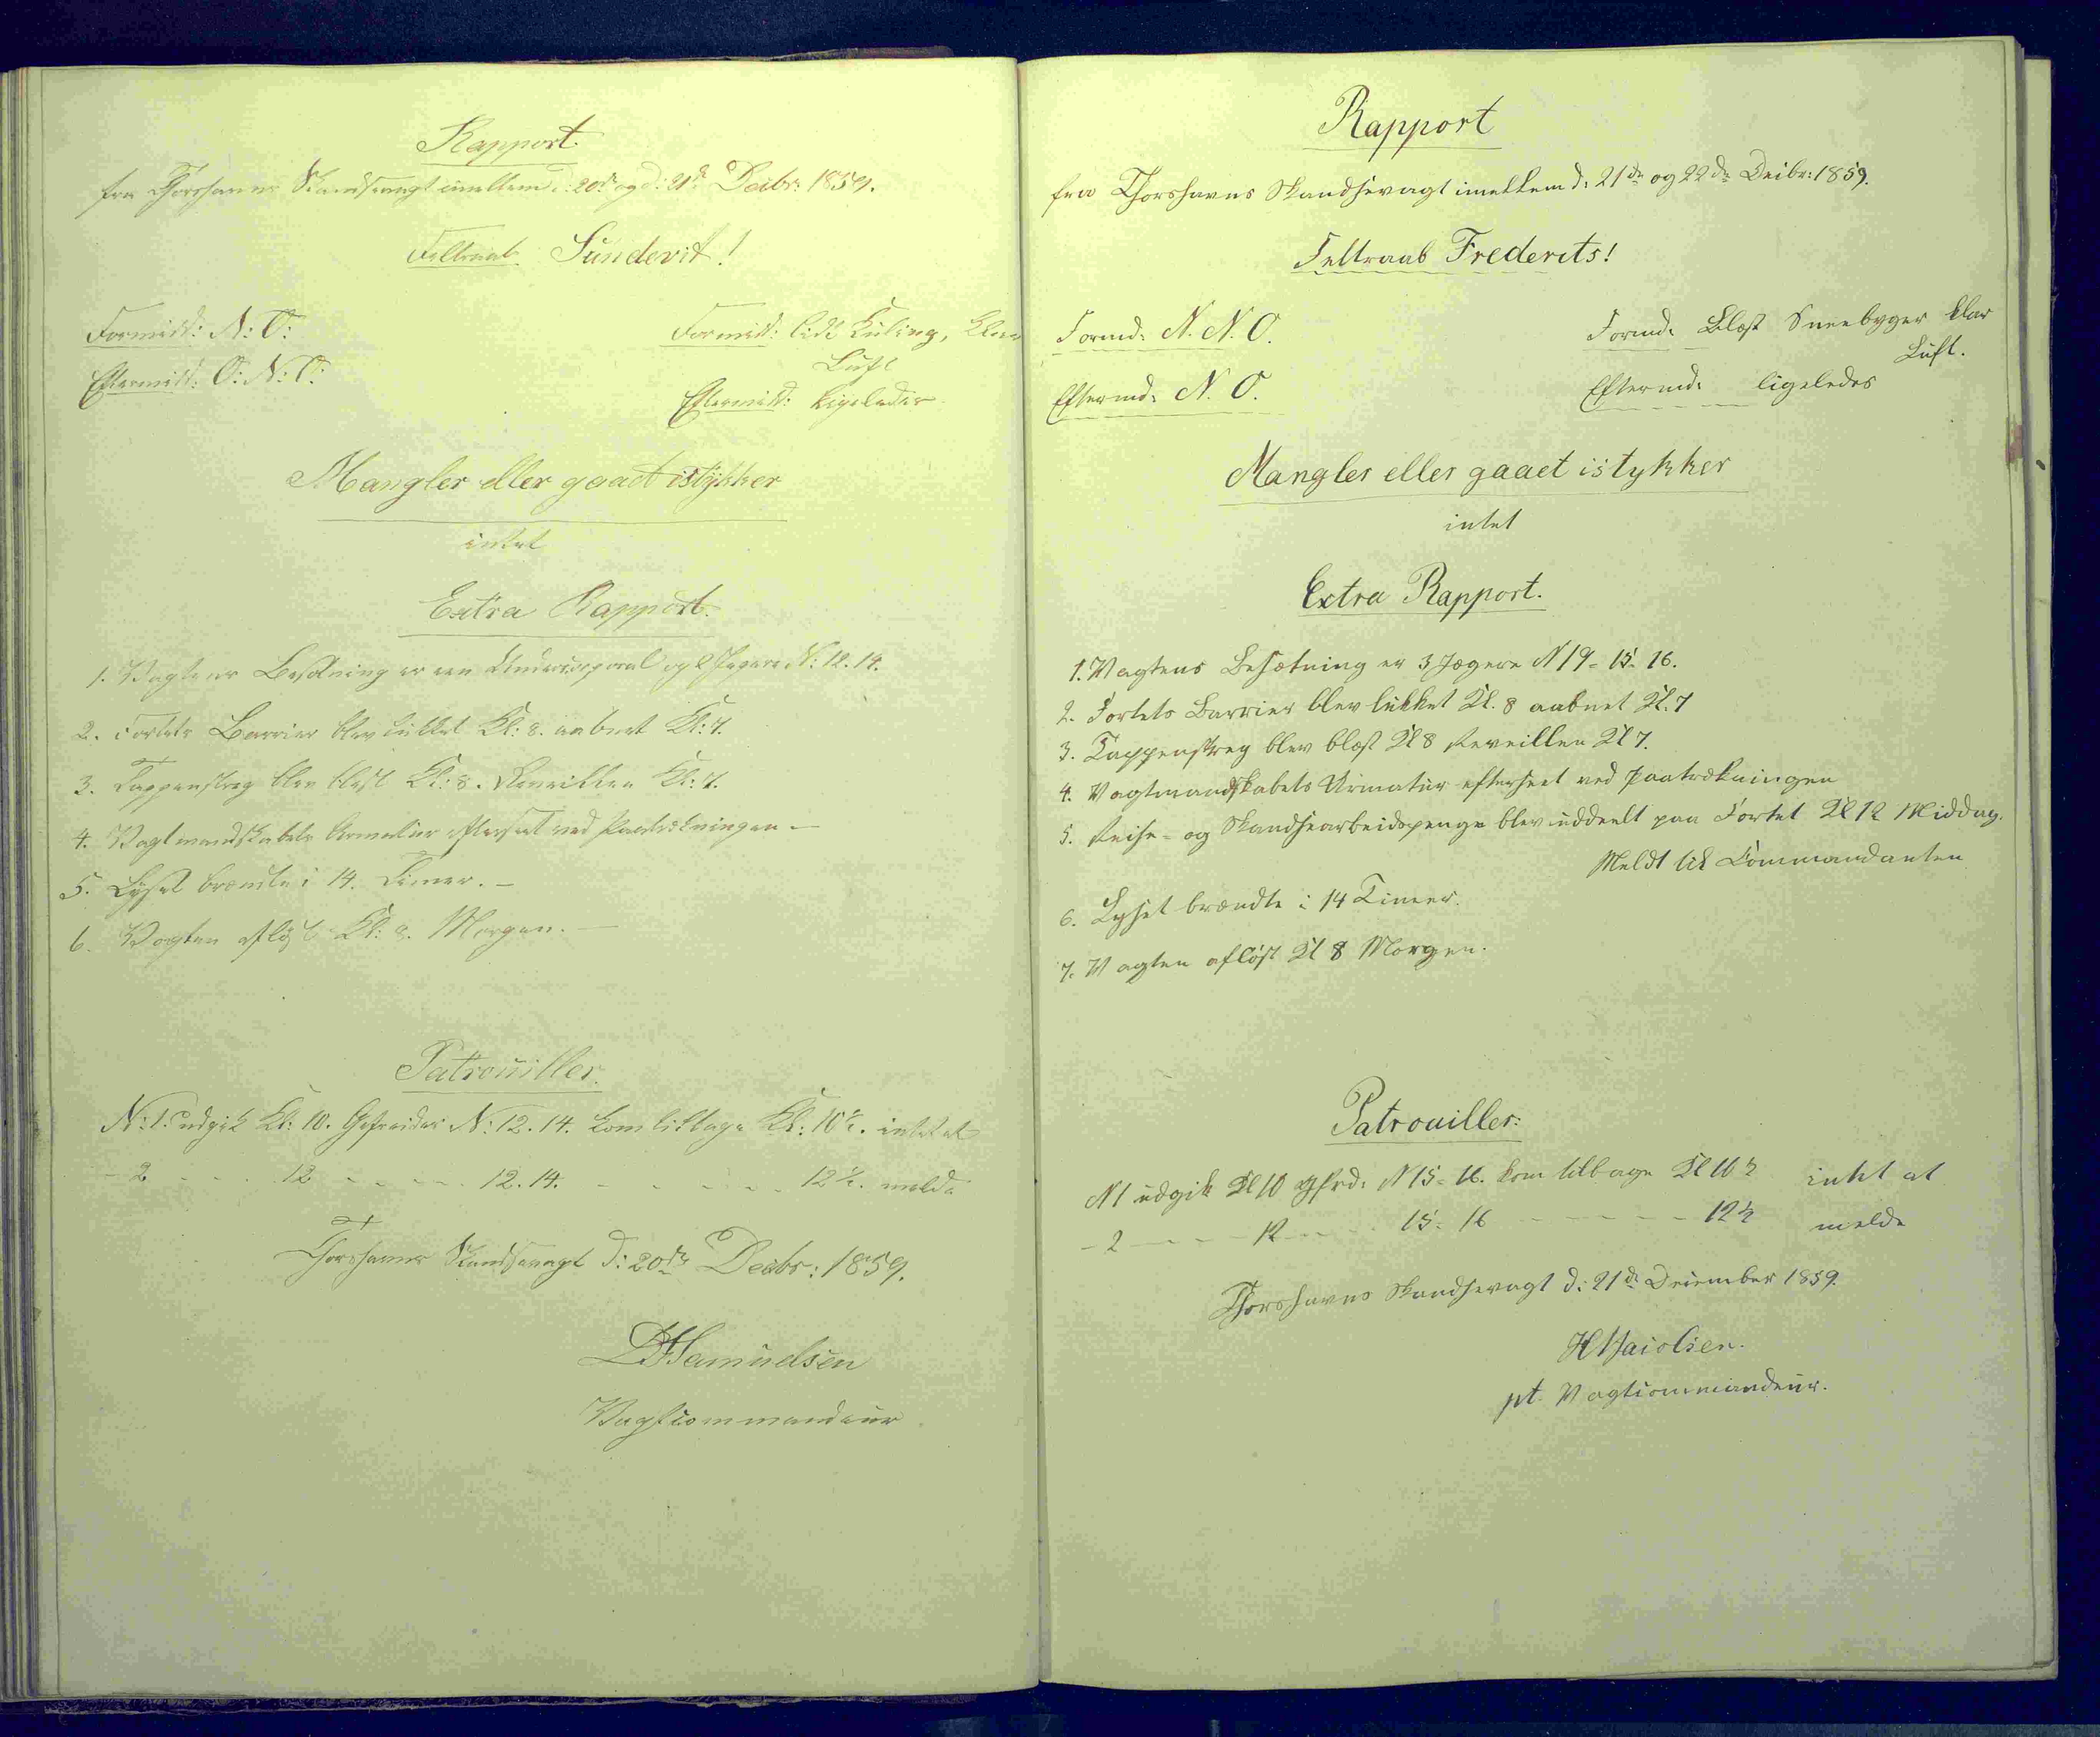 Rapport
fra Thorshavns Skandsevagt imellem d: 20de og d: 21de Decbr: 1859.
Feltraab Sundevit!
Formidd: N: O:
Formidd: lidt Kuling, klar
Luft
Eftermidd: O: N: O:
Eftermidd: ligeledes
Mangler eller gaaet istykker
intet
Extra Rapport.
1. Vagtens Besætning er een Undercorporal og 2 Jægere N: 12. 14.
2. Fortets Barrier blev lukket Kl: 8. aabnet Kl: 7.
3. Tappenstreg blev blæst Kl: 8. Reveillen Kl: 7.
4. Vagtmandskabets Armatur efterseet ved Paatrækningen. —
5. Lyset brændte i 14. Timer. —
6. Vagten afløst Kl: 8. Morgen. —
Patrouiller.
N: 1. udgik Kl: 10. Gefreider N: 12. 14. kom tilbage Kl: 10½. intet at
- 2 - - - 12 - - - - 12. 14. - - - - - 12½. melde
Thorshavns Skandsevagt d: 20de Decbr: 1859.
Samuelsen
Vagtcommandeur
Rapport
fra Thorshavns Skandsevagt imellem d: 21de og 22de Decbr: 1859.
Feltraab Frederits!
Formd: N. N. O.
Formd: Blæst Sneebyger klar
Luft.
Eftermd: N. O.
Eftermd: ligeledes
Mangler eller gaaet istykker
intet
Extra Rapport.
1. Vagtens Besætning er 3 Jægere N 19 - 15 - 16.
2. Fortets Barrier blev lukket Kl. 8 aabnet Kl. 7
3. Tappenstreg blev blæst Kl 8 Reveillen Kl 7.
4. Vagtmandskabets Armatur efterseet ved Paatrækningen
5. Reise- og Skandsearbeidspenge blev uddeelt paa Fortet Kl 12 Middag.
Meldt til Commandanten
6. Lyset brændte i 14 Timer.
7. Vagten afløst Kl 8 Morgen.
Patrouiller:
N 1 udgik Kl 10 Gfrd: N 15 - 16. kom tilbage Kl 10½ intet at
- 2 - - - - 12 - - - - 15 - 16 - - - - - - 12½ melde
Thorshavns Skandsevagt d: 21de December 1859.
pt. Vagtcommandeur.